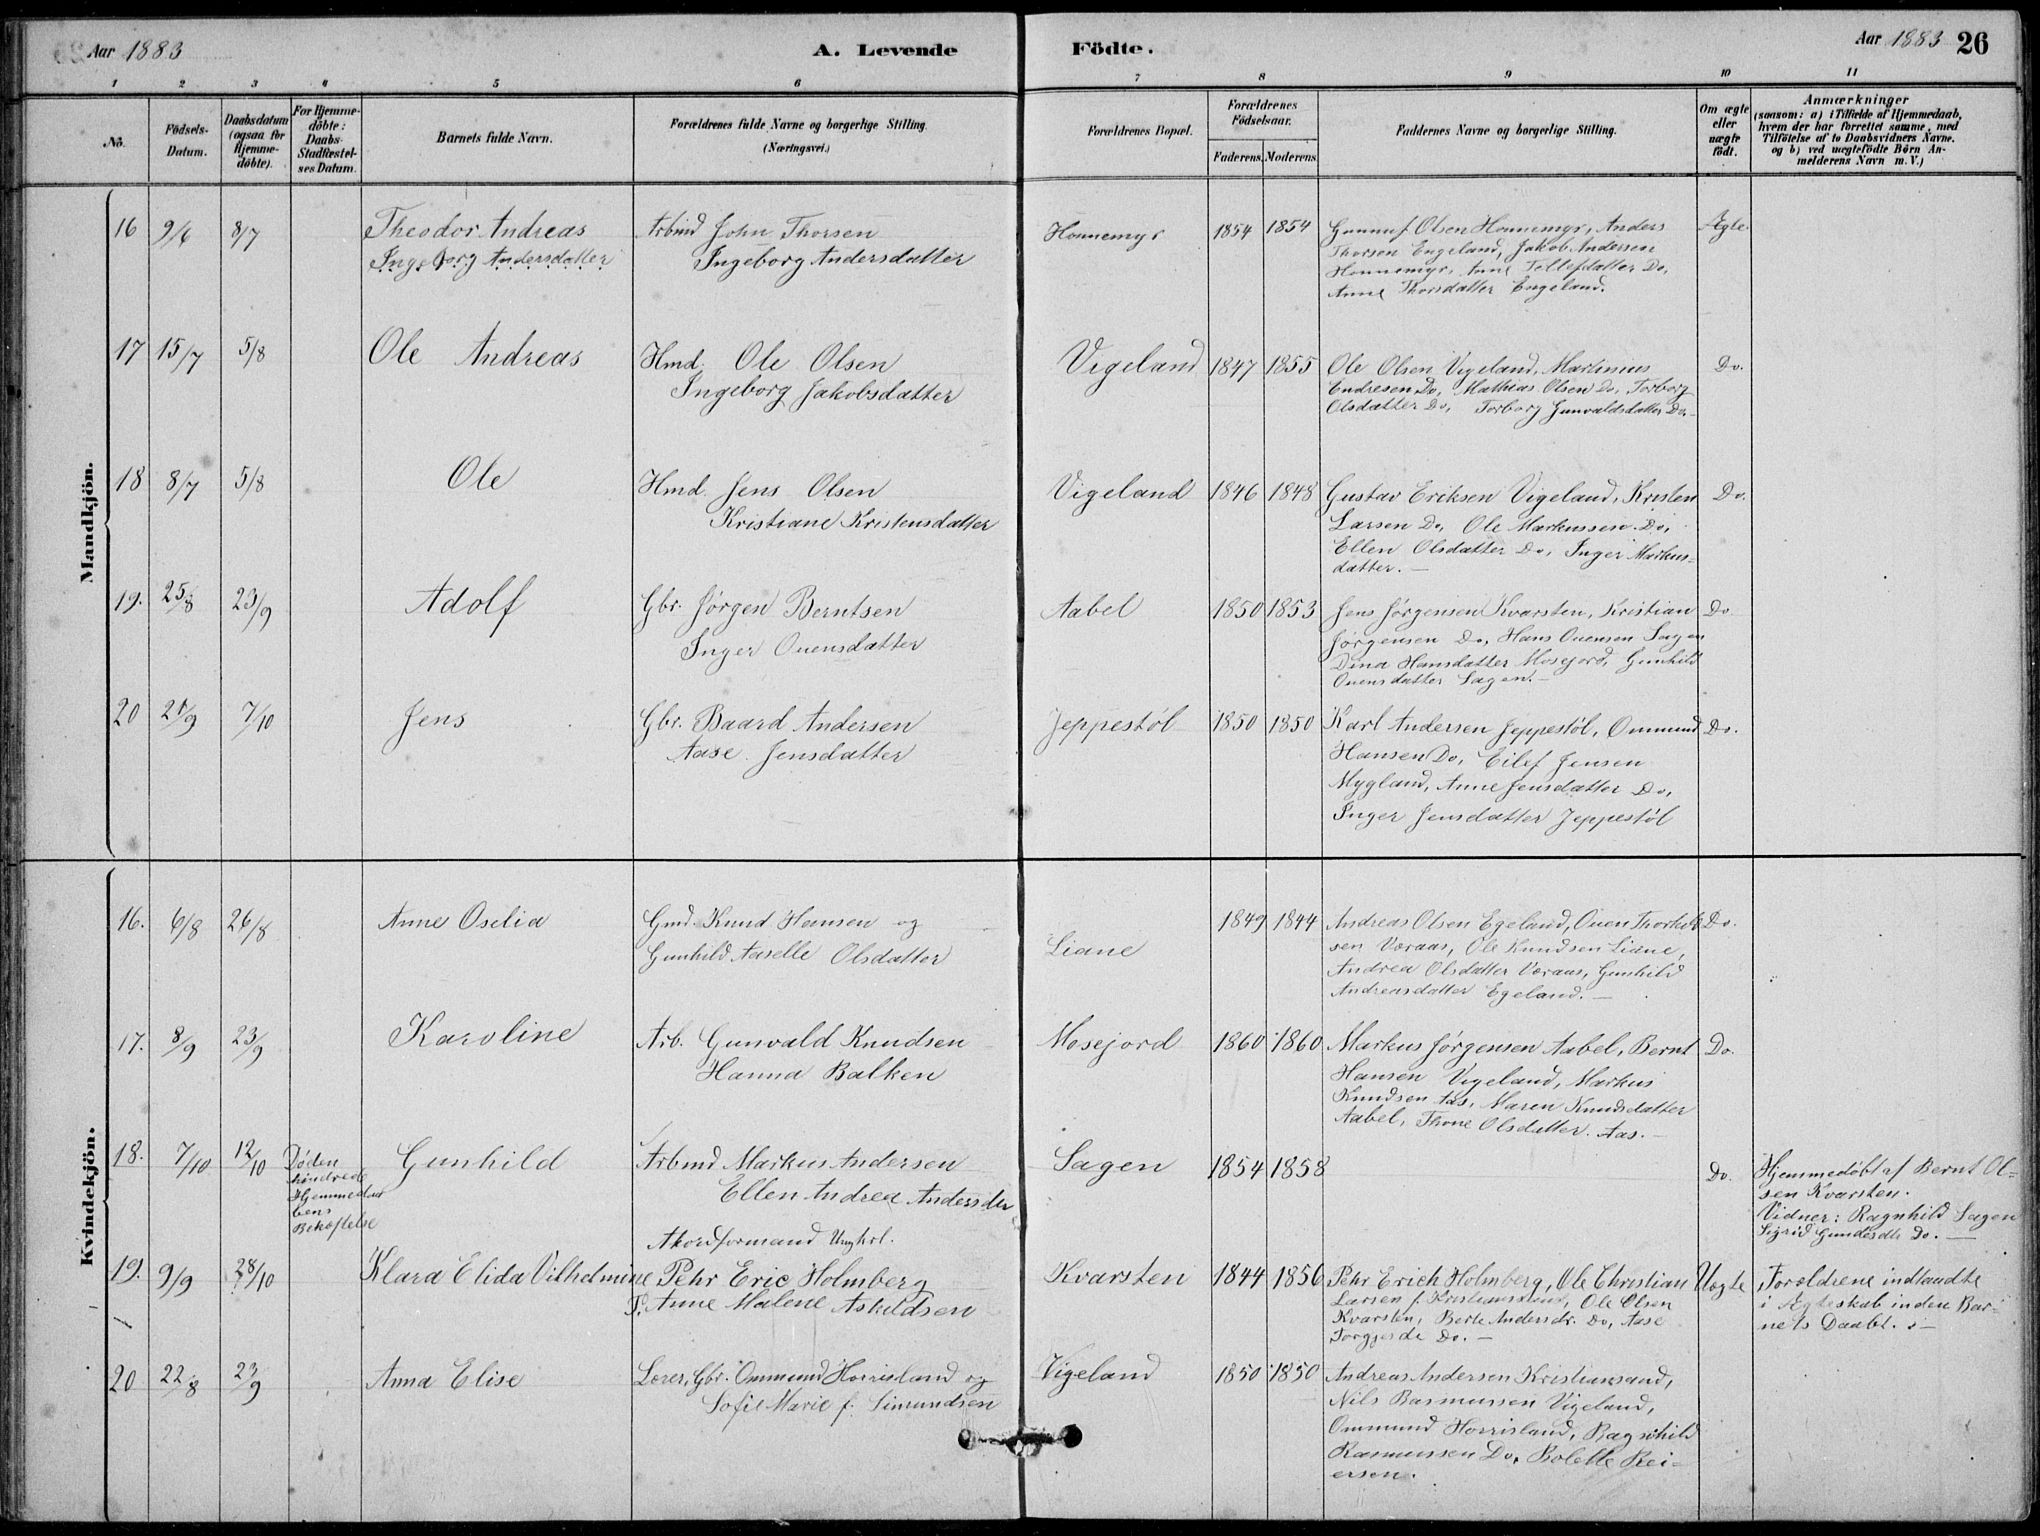 Aar 1883
A. Levende Födte.
Aar 1883 26
1 2 3 4 5 6 7 8 9 10 11
No.
Födsels-Datum.
Daabsdatum (ogsaa for Hjemme-döbte).
For Hjemme-döbte: Daabs-Stadfæstel-ses Datum.
Barnets fulde Navn.
Forældrenes fulde Navne og borgerlige Stilling. (Næringsvei.)
Forældrenes Bopæl.
Forældrenes Födselsaar.
Faderens. Moderens.
Faddernes Navne og borgerlige Stilling.
Om ægte eller uægte födt.
Anmærkninger
(saasom: a) i Tilfælde af Hjemmedaab, hvem der har forrettet samme, med Tilföielse af to Daabsvidners Navne. og b) ved uægtefödte Börn An-melderens Navn m. V.)
Mandkjön.
16 9/6 8/7 Theodor Andreas
Ingeborg Andersdatter
Arbmd John Thorsen
Ingeborg Andersdatter
Honnemyr 1854 1854
Gunnuf Olsen Honnemyr, Anders
Thorsen Engeland, Jakob Andersen
Honnemyr, Anne Tellefdatter Do,
Anne Thorsdatter Engeland.
Ægte.
17 15/7 5/8 Ole Andreas
Hmd. Ole Olsen
Ingeborg Jakobsdatter
Vigeland 1847 1855
Ole Olsen Vigeland, Martinius
Endresen Do, Mathias Olsen Do, Torborg
Olsdatter Do, Torborg Gunvaldsdatter Do.
Do.
18 8/7 5/8 Ole
Hmd. Jens Olsen
Kristiane Kristensdatter
Vigeland 1846 1848
Gustav Eriksen Vigeland, Kristen
Larsen Do, Ole Markussen Do,
Ellen Olsdatter Do, Inger Markus-
datter. —
Do.
19. 25/8 23/9 Adolf
Gbr. Jørgen Berntsen
Inger Ouensdatter
Aabel 1850 1853
Jens Jørgensen Kvarsten, Kristian
Jørgensen Do, Hans Ouensen Sagen
Dina Hansdatter Mosejord, Gunhild
Ouensdatter Sagen. —
Do
20 21/9 7/10 Jens
Gbr. Baard Andersen
Aase Jensdatter
Jeppestøl 1850 1850
Karl Andersen Jeppestøl, Ommund
Hansen Do, Eilef Jensen
Mygland, Anne Jensdatter Do,
Inger Jensdatter Jeppestøl
Do.
Kvindekjön.
16. 6/8 26/8 Anne Oselia
Gmd Knud Hansen og
Gunhild Aaselle Olsdatter
Liane 1849 1844
Andreas Olsen Egeland, Ouen Thorkels-
sen Voraas, Ole Knudsen Liane,
Andrea Olsdatter Voraas, Gunhild
Andreasdatter Egeland. —
Do.
17. 8/9 23/9 Karoline
Arb. Gunvald Knudsen
Hanna Balken
Mosejord 1860 1860
Markus Jørgensen Aabel, Bernt
Hansen Vigeland, Markus
Knudsen Aas, Maren Knudsdatter
Aabel, Thone Olsdatter. Aas. —
Do.
18. 7/10 12/10
Døden
hindrede
Hjemmedaa
bens
Bekræftelse
Gunhild
Arbmd Markus Andersen
Ellen Andrea Andersdtr
Sagen 1854 1858
Do.
Hjemmedøbt af Bernt Ol-
sen Kvarsten.
Vidner: Ragnhild Sagen
Sigrid Gundesdtr Do. —
19. 9/9 28/10 Klara Elida Vilhelmine
Akordformand Ungkrl.
Pehr Eric Holmberg
P. Anne Malene Askildsen
Kvarsten 1844 1856
Pehr Erich Holmberg, Ole Christian
Larsen f. Kristianssand, Ole Olsen
Kvarsten, Berte Andersdr. Do, Aase
Torgjersd. Do. —
Uægte
Foreldrene indtraadte
i Ægteskab inden Bar-
nets Daab. —
20 22/8 23/9 Anna Elise
Lærer, Gbr. Ommund Horrisland og
Sofie Marie f. Simundsen
Vigeland 1850 1850
Andreas Andersen Kristianssand,
Nils Rasmussen Vigeland,
Ommund Horrisland, Ragnhild
Rasmussen Do, Bolette Rei-
ersen.